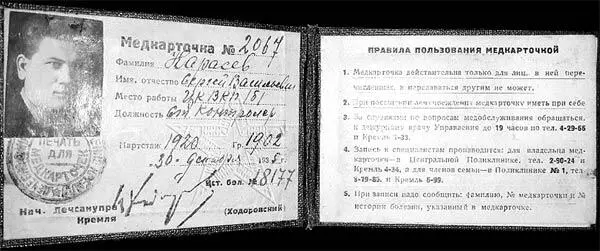 Медкарточка № 2067
Фамилия Карасев
Имя, отчество Сергей Васильевич
Место работы Цк ВКП(б)
Должность Отв контролер
Партстаж 1920 Г. р. 1902
"30" декабря 1935 г.
Ист. бол. № 18177
Нач. Лечсанупра
Кремля
(Ходоровский)
ПЕЧАТЬ
ДЛЯ
ПРАВИЛА ПОЛЬЗОВАНИЯ МЕДКАРТОЧКОЙ
1. Медкарточка действительна только для лиц, в ней пере-
численных, и передаваться другим не может.
2. При посещении лечучреждения медкарточку иметь при себе
3. За справками по вопросам медобслуживания обращаться
к дежурному врачу Управления до 19 часов по тел. 4-29-66
и Кремль
4. Запись к специалистам производится: для владельца мед-
карточки—в Центральной Поликлинике, тел. 2-90-24 и
Кремль 4-34, а для членов семьи—в Поликлинике № 1, тел.
и Кремль
5. При записи надо сообщить: фамилию, № медкарточки и №
истории болезни, указанный в медкарточке.